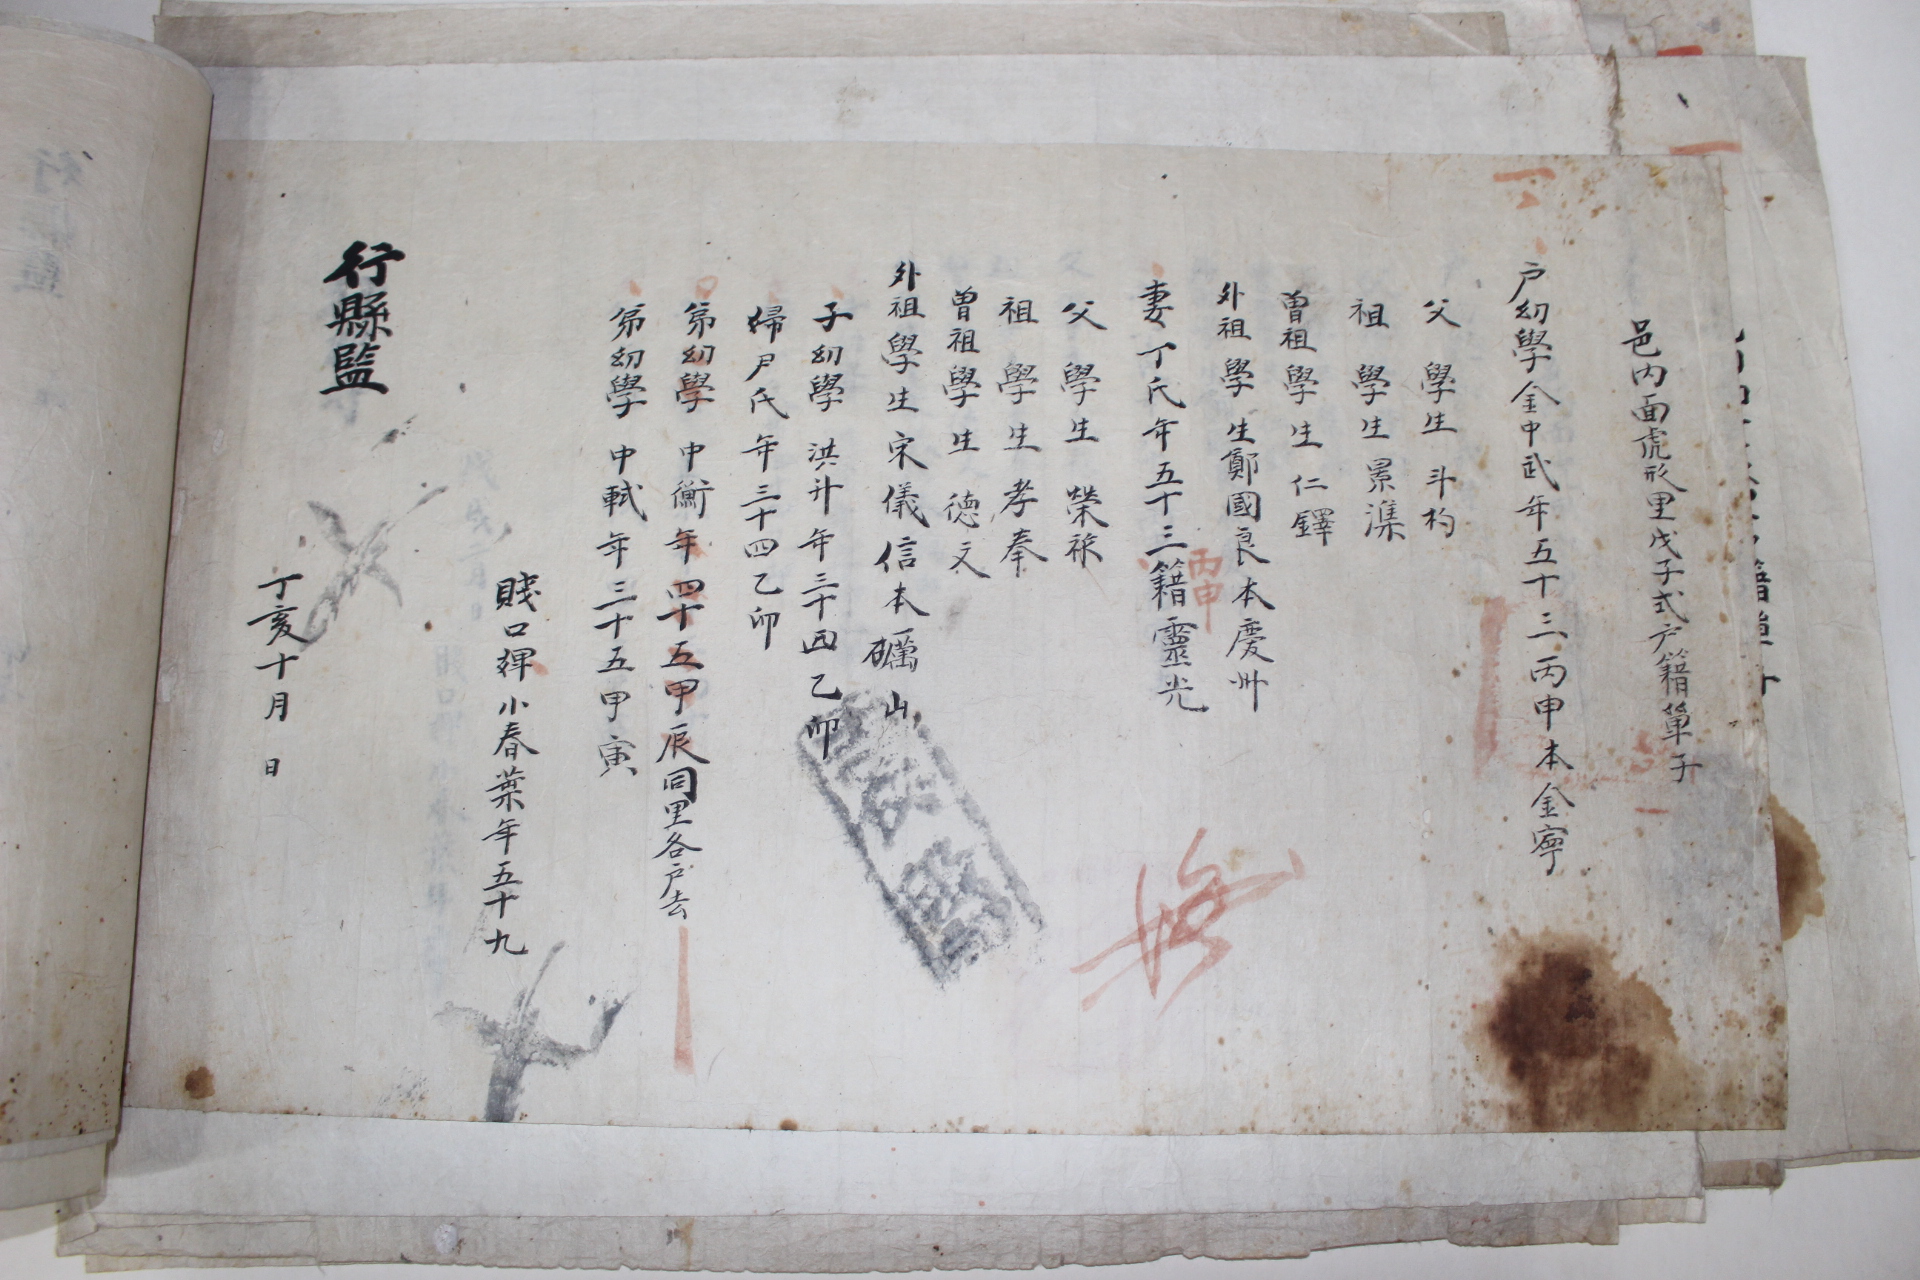 邑內面虎形里戊子式户籍單子
户幼學金中武年五十三丙申本金寧
父學生斗杓
祖學生景潗
曽祖學生仁鐸
外祖學生鄭國良本慶州
妻丁氏年五十三籍靈光
丙申
父學生榮祿
祖學生孝奉
曽祖學生德文
外祖學生宋儀信本礪山
子幼學洪升年三十四乙卯
婦尹氏年三十四乙卯
弟幼學中衡年四十五甲辰同里各户去
弟幼學中軾年三十五甲寅
賤口婢小春葉年五十九
行縣監
丁亥十月日